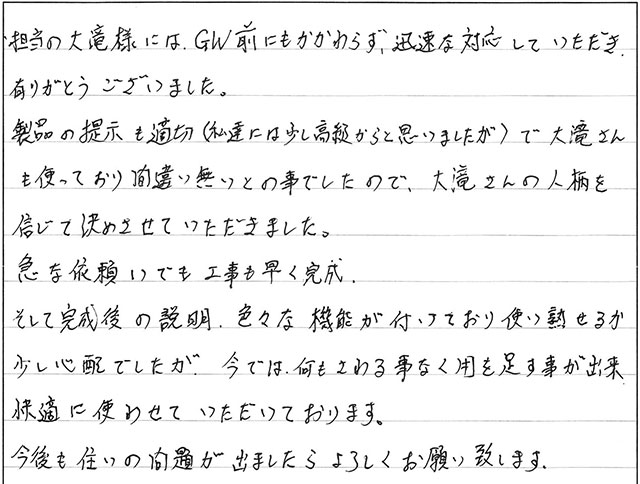 担当の大滝様には、GW前にもかかわらず、迅速な対応していただき、
有りがとうございました。
製品の提示も適切(私達には少し高級からと思いましたが)で大滝さん
も使っており間違い無いとの事でしたので、大滝さんの人柄を
信じて決めさせていただきました。
急な依頼いでも工事も早く完成、
そして完成後の説明、色々な機能が付いており使い熟せるか
少し心配でしたが、今では、何もさわる事なく用を足す事が出来
快適に使わせていただいております。
今後も住いの問題が出ましたらよろしくお願い致します。